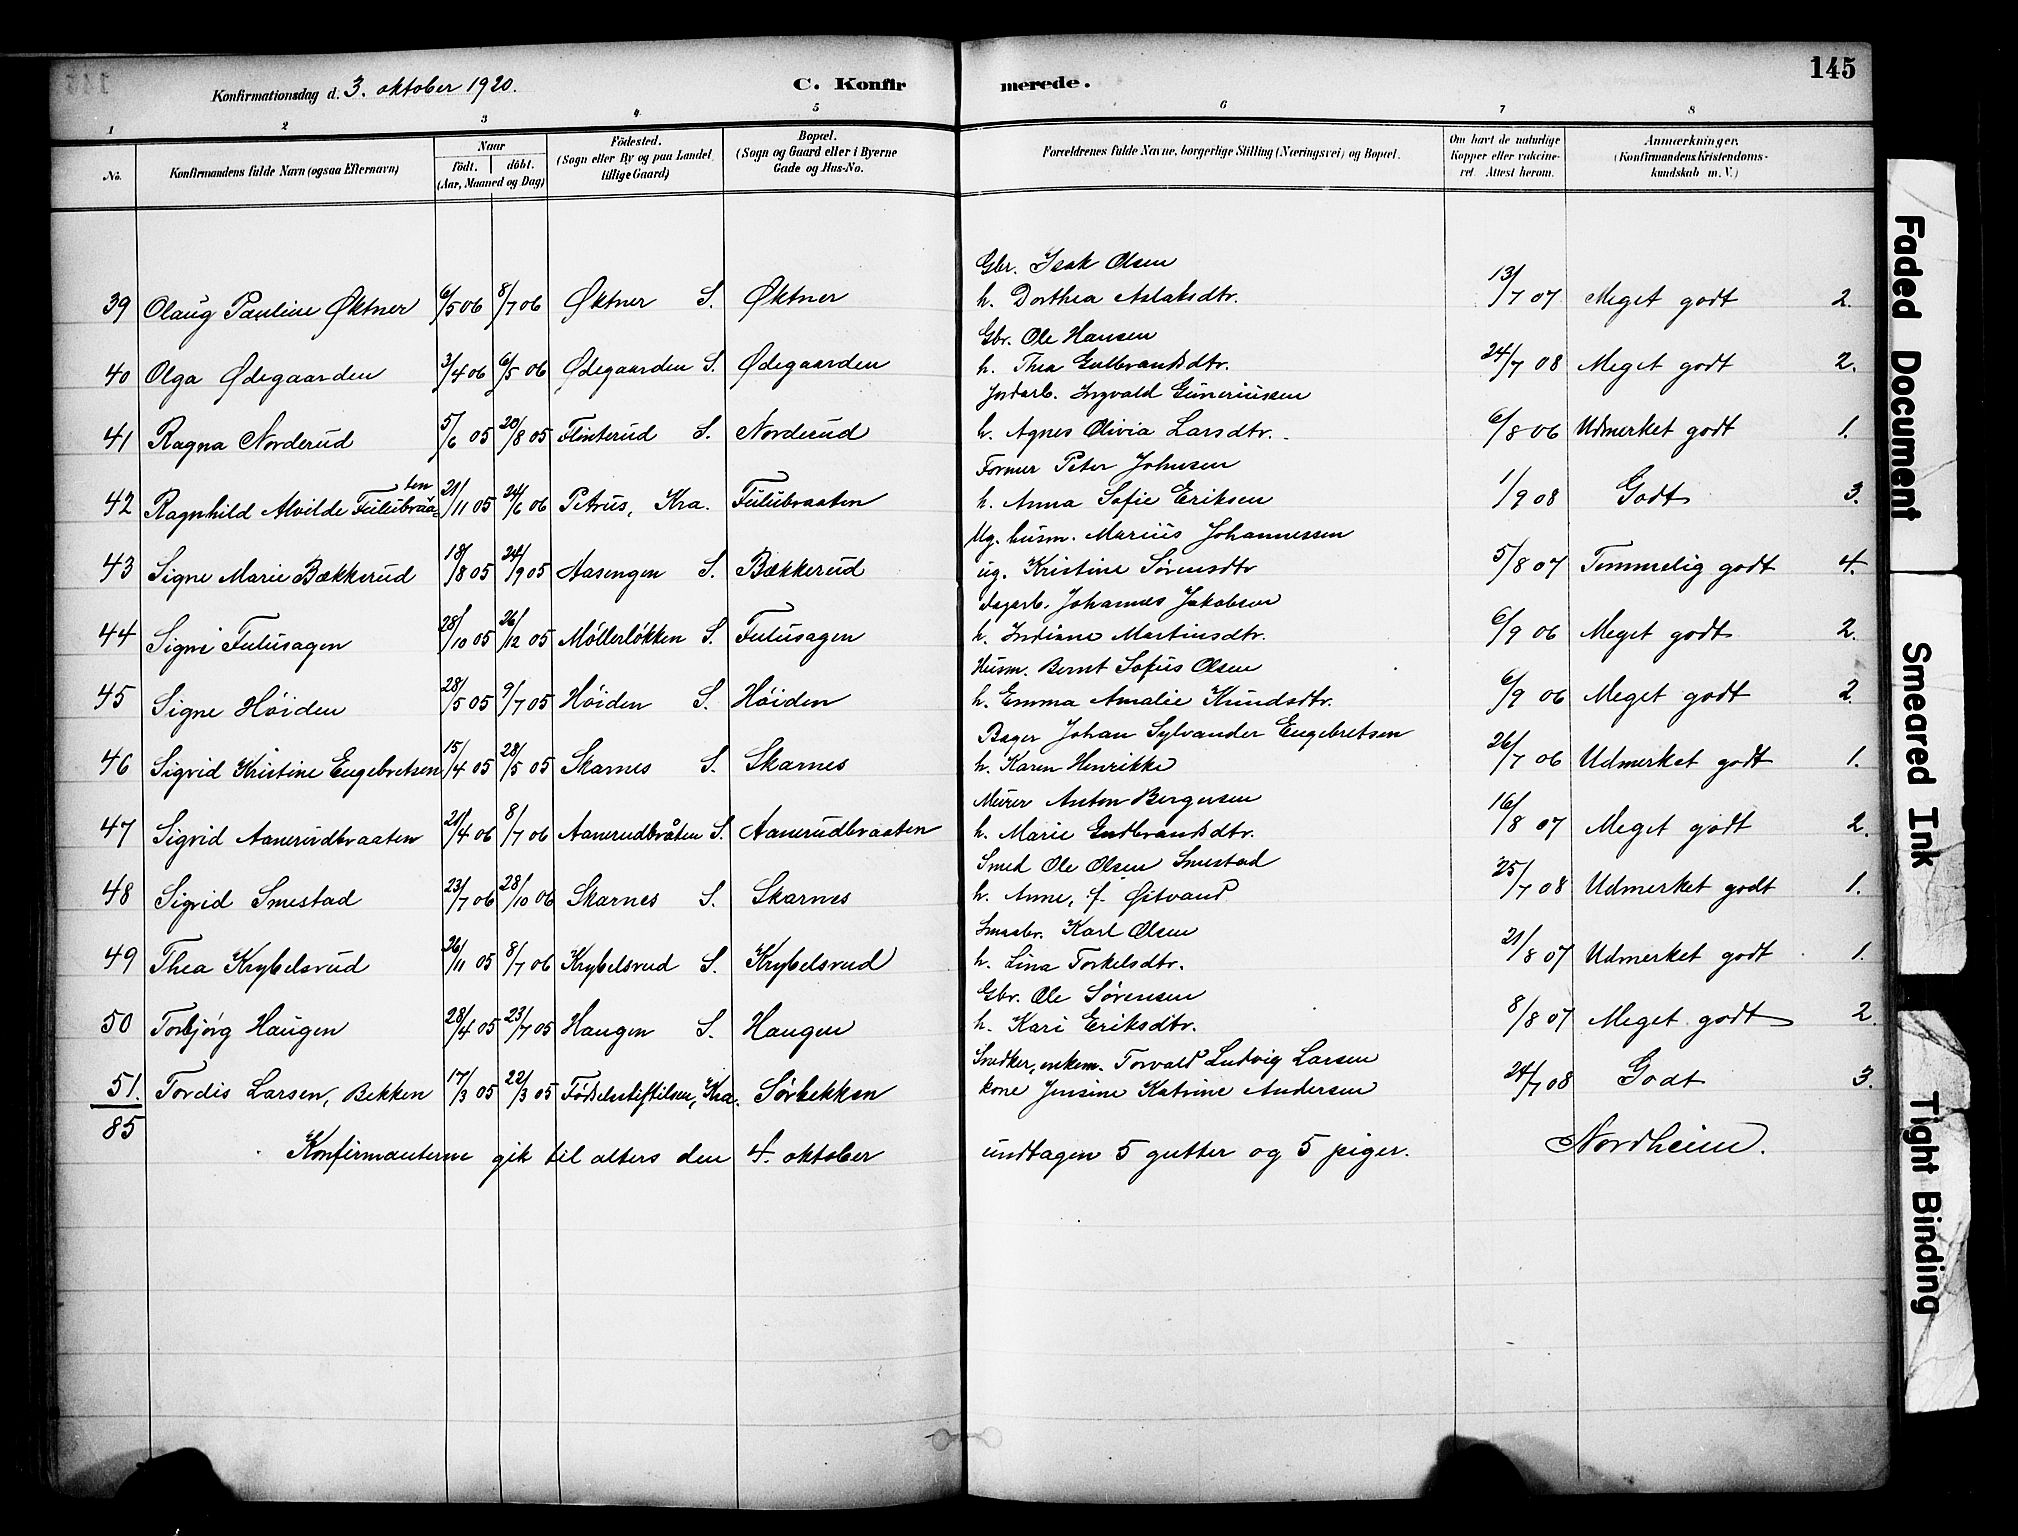 145
Konfirmationsdag d. 3. oktober 1920. C. Konfirmerede.
1 2 3 4 5 6 7 8
No. Konfirmandens fulde Navn (ogsaa Efternavn) Naar født. døbt. (Aar, Maaned og Dag) Fødested. (Sogn eller By og paa Landet tillige Gaard) Bopæl. (Sogn og Gaard eller i Byerne Gade og Hus-No. Forældrenes fulde Navne, borgerlige Stilling (Næringsvei) og Bopæl. Om havt de naturlige Kopper eller vakcineret. Attest herom. Anmærkninger. (Konfirmandens Kristendomskundskab m. V.)
Gbr. Isak Olsen
39 Olaug Pauline Øktner 6/5 06 8/7 06 Øktner S. Øktner h. Dorthea Aslaksdtr. 13/7 07 Meget godt 2.
Gbr. Ole Hansen
40 Olga Ødegaarden 3/4 06 6/5 06 Ødegaarden S. Ødegaarden h. Thea Gulbrandsdtr. 24/7 08 Meget godt 2.
Jordarb. Ingvald Guneriussen
41 Ragna Norderud 5/6 05 20/8 05 Flinterud S. Norderud h. Agnes Olivia Larsdtr. 6/8 06 Udmerket godt 1.
Former Peter Johnsen
42 Ragnhild Alvilde Fulubraaten 21/11 05 24/6 06 Petrus, Kra. Fulubraaten h. Anna Sofie Eriksen 1/9 08 Godt 3.
Ug. husm. Marius Johannessen
43 Signe Marie Bækkerud 18/8 05 24/9 05 Aasengen S. Bækkerud ug. Kristine Sørensdtr 5/8 07 Temmelig godt 4.
Dagarb. Johannes Jakobsen
44 Signe Fulusagen 28/10 05 26/12 05 Møllerløkken S. Fulusagen h. Indiane Martinsdtr. 6/9 06 Meget godt 2.
Husm. Bernt Sofus Olsen
45 Signe Høiden 28/5 05 9/7 05 Høiden S. Høiden h. Emma Amalie Knudsdtr. 6/9 06 Meget godt 2.
Bager Johan Sylvander Engebretsen
46 Sigrid Kristine Engebretsen 15/4 05 28/5 05 Skarnes S. Skarnes h. Karen Henrikke 26/7 06 Udmerket godt 1.
Murer Anton Bergersen
47 Sigrid Aanerudbraaten 21/4 06 8/7 06 Aanerudbråten S. Aanerudbraaten h. Marie Gudbrandsdtr. 16/8 07 Meget godt 2.
Smed Ole Olsen Smestad
48 Sigrid Smestad 23/7 06 28/10 06 Skarnes S. Skarnes h. Anne, f. Østvand 25/7 08 Udmerket godt 1.
Smaabr. Karl Olsen
49 Thea Krybelsrud 26/11 05 8/7 06 Krybelsrud S. Krybelsrud h. Lina Torkelsdtr. 21/8 07 Udmerket godt 1.
Gbr. Ole Sørensen
50 Torbjørg Haugen 28/4 05 23/7 05 Haugen S. Haugen h. Kari Eriksdtr. 8/8 07 Meget godt 2.
Snedker, enkem. Torvald Ludvig Larsen
51. Tordis Larsen, Bekken 17/3 05 22/3 05 Fødselsstiftelsen, Kra. Sørbekken kone Jensine Katrine Andersen 24/7 08 Godt 3.
85
Konfirmanterne gik til alters den 4. oktober undtagen 5 gutter og 5 piger. Nordheim.
Faded Document
Smeared Ink
Tight Binding